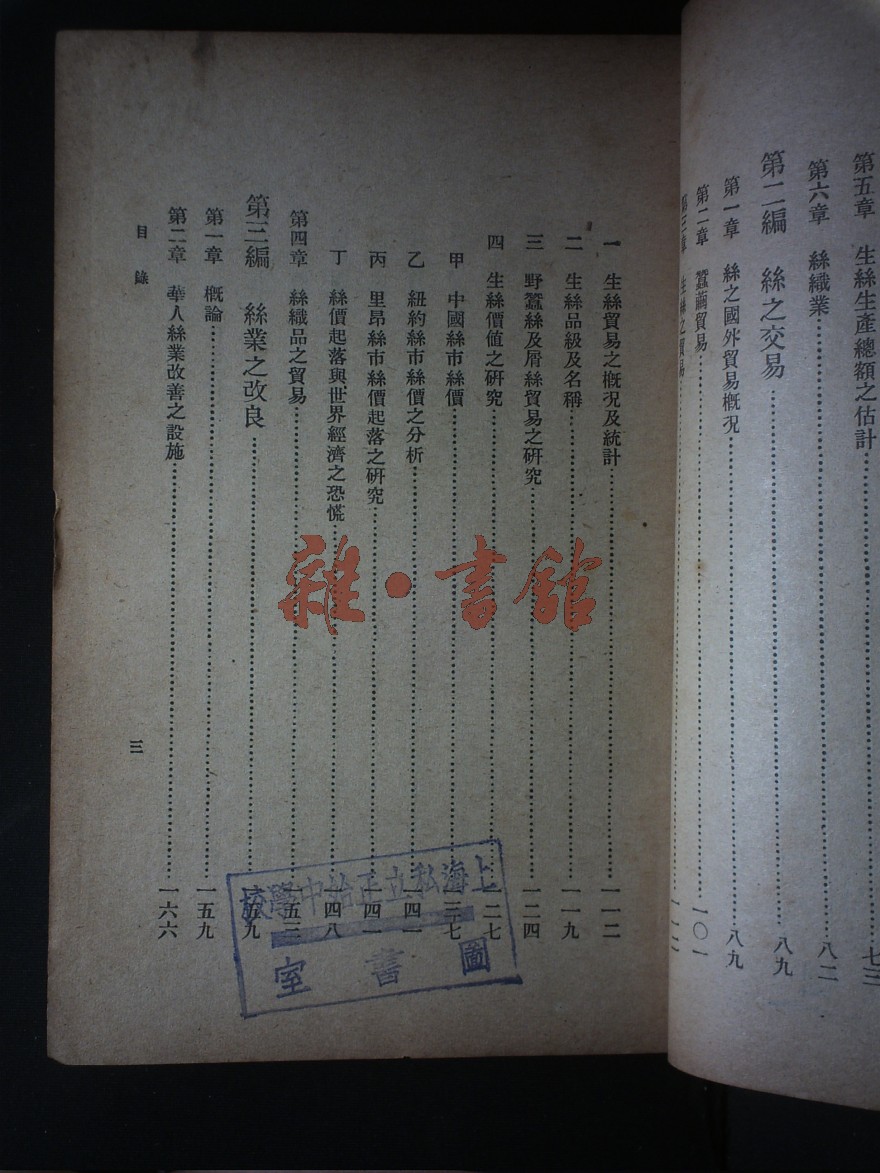 第五章　生絲生產總額之估計……七三
第六章　絲織業……八二
第二編　絲之交易……八九
第一章　絲之國外貿易概況……八九
第二章　蠶繭貿易……一〇一
第三章　生絲之貿易……一一二
一　生絲貿易之概況及統計……一一二
二　生絲品級及名稱……一一九
三　野蠶絲及屑絲貿易之研究……一二四
四　生絲價值之研究……一二七
甲　中國絲市絲價……一三七
乙　紐約絲市絲價之分析……一四一
丙　里昂絲市絲價起落之研究……一四一
丁　絲價起落與世界經濟之恐慌……一四八
第四章　絲織品之貿易……一五三
第三編　絲業之改良……一五九
第一章　概論……一五九
第二章　華人絲業改善之設施……一六六
目錄
三
雜·書館
上海私立正始中學校
圖書室